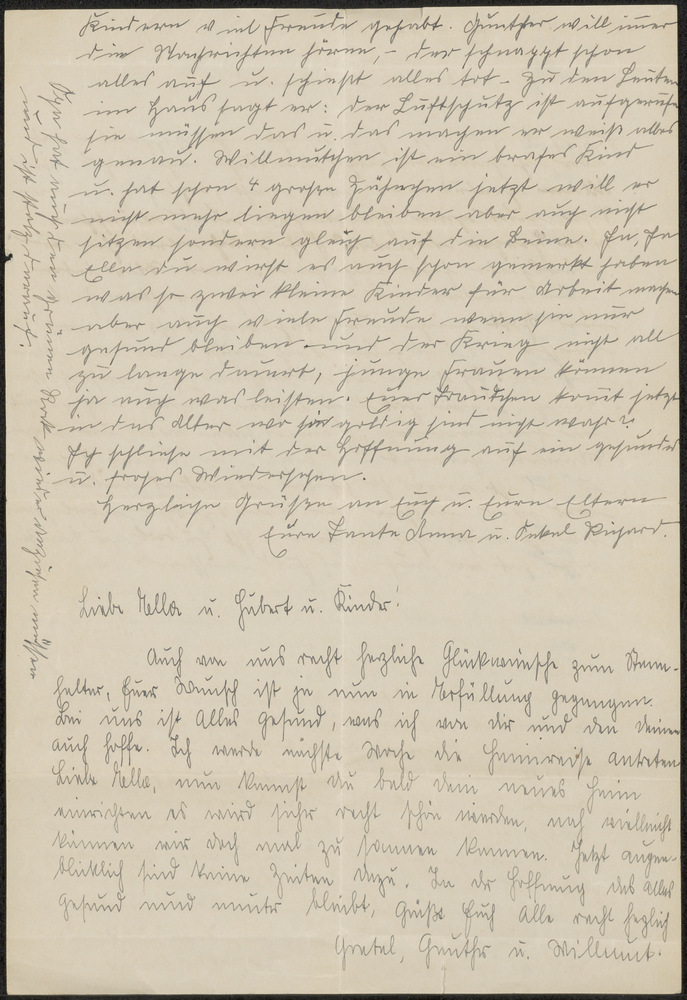 Kindern viel Freude gehabt. Günther will immer
die Nachrichten hören, – der schnappt schon
alles auf u. schießt alles tot – zu den Leuten
im Haus sagt er: der Luftschutz ist aufgerufen
sie müssen das u. das machen er weiß alles
genau. Willmutchen ist ein braves Kind
u. hat schon 4 große Zähnchen jetzt will er
nicht mehr liegen bleiben aber auch nicht
sitzen sondern gleich auf die Beine. Ja, Ja
Ella du wirst es auch schon gemerkt haben
was so zwei kleine Kinder für Arbeit machen
aber auch viele Freude wenn sie nur
gesund bleiben – und der Krieg nicht all
zu lange dauert, junge Frauen können
ja auch was leisten. Euer Trautchen kommt jetzt
in das Alter wo sie goldig sind nicht wahr?
Ich schließe mit der Hoffnung auf ein gesundes
u. frohes Wiedersehen.
Herzliche Grüße an Euch u. Eure Eltern
Eure Tante Anna u. Onkel Richard.
und ist stolz darauf.
Liebe Ella u. Hubert u. Kinder!
Auch von uns recht herzliche Glückwünsche zum Stamm-
halter, Euer Wunsch ist ja nun in Erfüllung gegangen.
Bei uns ist Alles gesund, was ich von dir und den deinen
auch hoffe. Ich werde nächste Woche die Heimreise antreten
Liebe Ella, nun kannst du bald dein neues Heim
einrichten es wird sicher recht schön werden, na vielleicht
können wir doch mal zu kommen. Jetzt augen-
blicklich sind keine Zeiten dazu. In der Hoffnung das alles
gesund und munter bleibt, grüßt Euch Alle recht herzlich
Gretel, Günther u. Willmut.